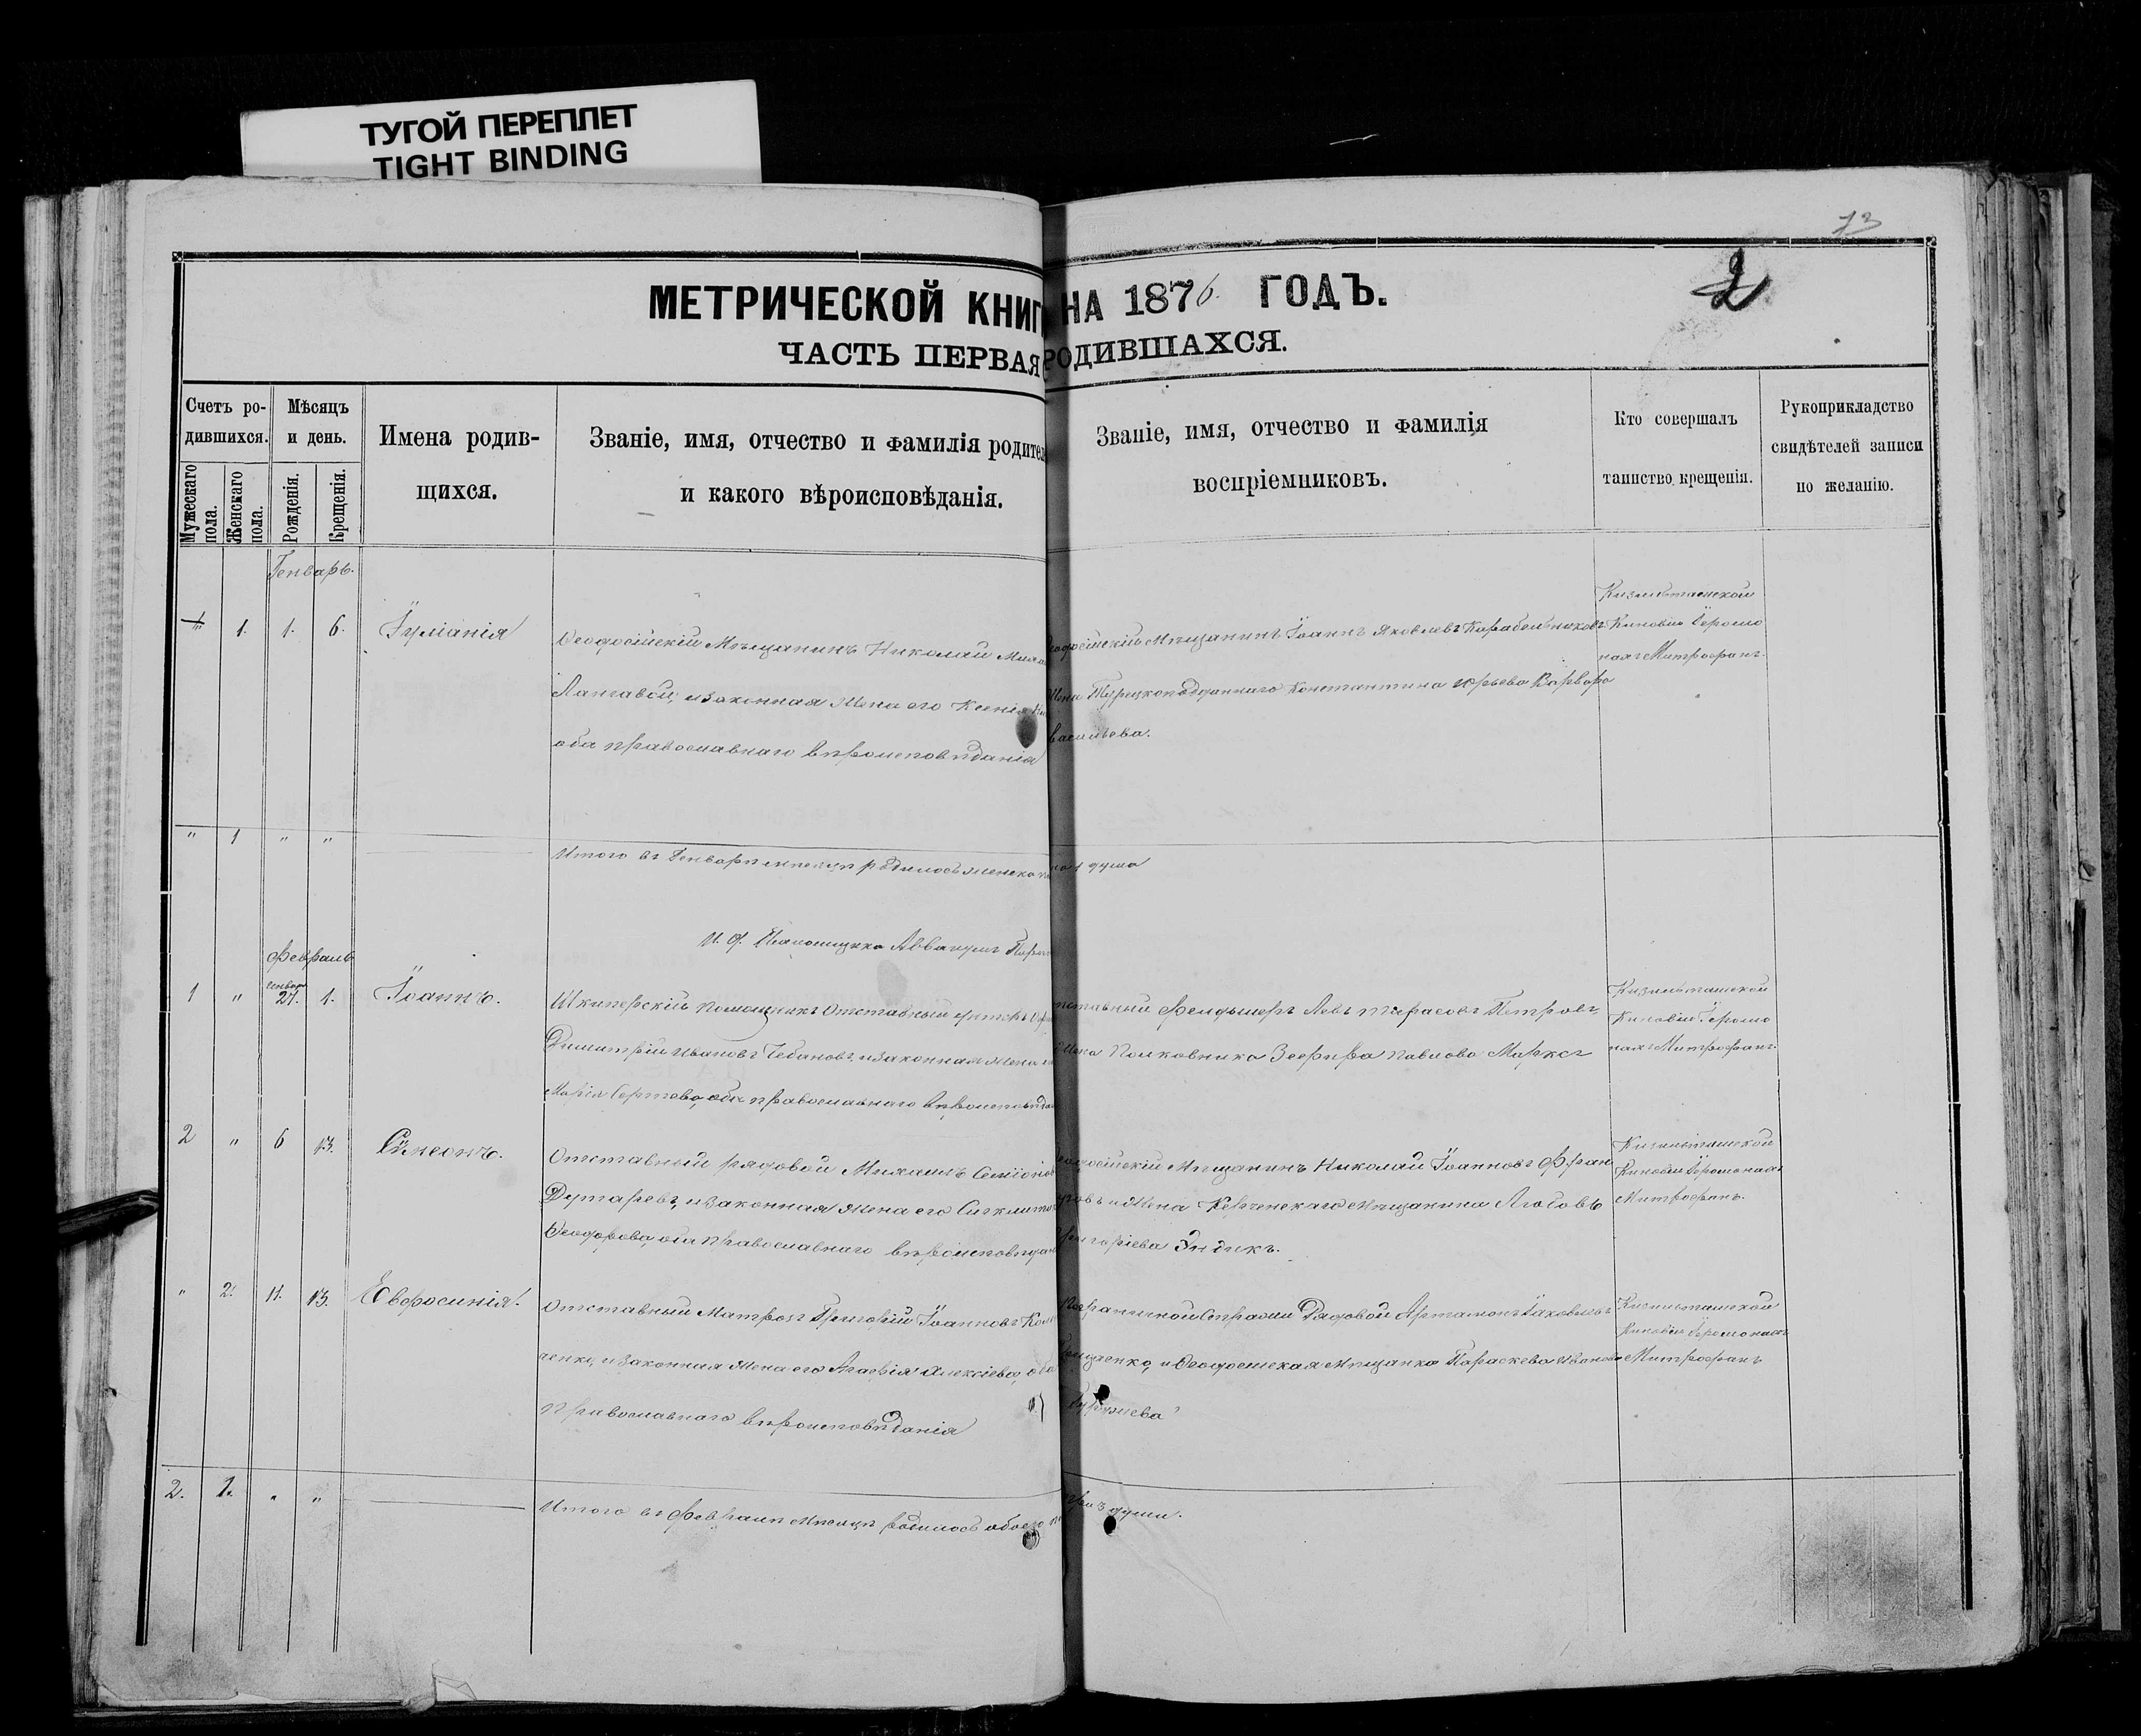 ТУГОЙ ПЕРЕПЛЕТ
TIGHT BINDING
73
2
МЕТРИЧЕСКОЙ КНИГ НА 1876 ГОДЪ.
ЧАСТЬ ПЕРВАЯ РОДИВШАХСЯ.
Счетъ ро-
дившихся.
Мужескаго пола.
Женскаго пола.
Мѣсяцъ
и день.
Рожденія.
Крещенія.
Имена родив-
щихся.
Званіе, имя, отчество и фамилія родител
и какого вѣроисповѣданія.
Званіе, имя, отчество и фамилія
воспріемниковъ.
Кто совершалъ
таинство крещенія.
Рукоприкладство
свидѣтелей записи
по желанію.
Генварь.
1. 1. 6. Іуліанія
Ѳеодосійскій Мѣщанинъ Николай
и законная жена его Ксенія
оба православнаго вѣроисповѣданія
еодосійскій Мѣщанинъ Іоаннъ Яковлевъ Карабельниковъ
жена Турецкоподданнаго Константина Юрьева Варвара
Васильева.
Кизильташской
Киновіи Іеромо
нахъ Митрофанъ.
" 1 " "
Итого въ Генварѣ мѣсяцѣ родилось женска по ла 1 душа
Февраль
1 " Генваря 27. 1. Іоаннъ.
Шкиперскій помощникъ отставный
Димитрій Ивановъ Чебановъ и законная жена
Марія Сергѣева, оба православнаго вѣроисповѣда
тставный Фельдшеръ Левъ Тарасовъ Петровъ,
жена Полковника Зефира Павлова Марксъ
Кизильташской
Киновіи Іеромо
нахъ Митрофанъ.
2 " 6 13. Сѵмеонъ.
Отставный рядовой Михаилъ
и законная жена его
Ѳеодорова, оба православнаго вѣроисповѣдан
еодосійскій Мѣщанинъ Николай Іоанновъ Фран
и жена Керченскаго Мѣщанина Любовь
ригоріева Эндикъ.
Кизильташской
Киновіи Іеромонахъ
Митрофанъ.
" 2. 11. 13. Евфросинія.
Отставный Матрозъ Григорій Іоанновъ Кол
ченко, и законная жена его Агафія Алексіева, оба
православнаго вѣроисповѣданія
Пограничной Стражи Рядовой Артамонъ Іаковлевъ
и Ѳеодосійская Мѣщанка Параскева Иванова
Кизильташской
Киновіи Іеромонахъ
Митрофанъ
2. 1. " "
Итого въ Февралѣ Мѣсяцѣ родилось обоего по три 3 души.